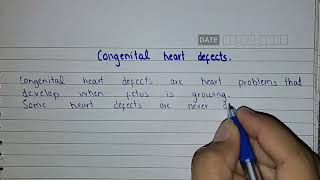 DATE
Congenital heart defects.
Congenital heart defects are heart problems that
develop when fetus is growing.
Some heart defects are never d